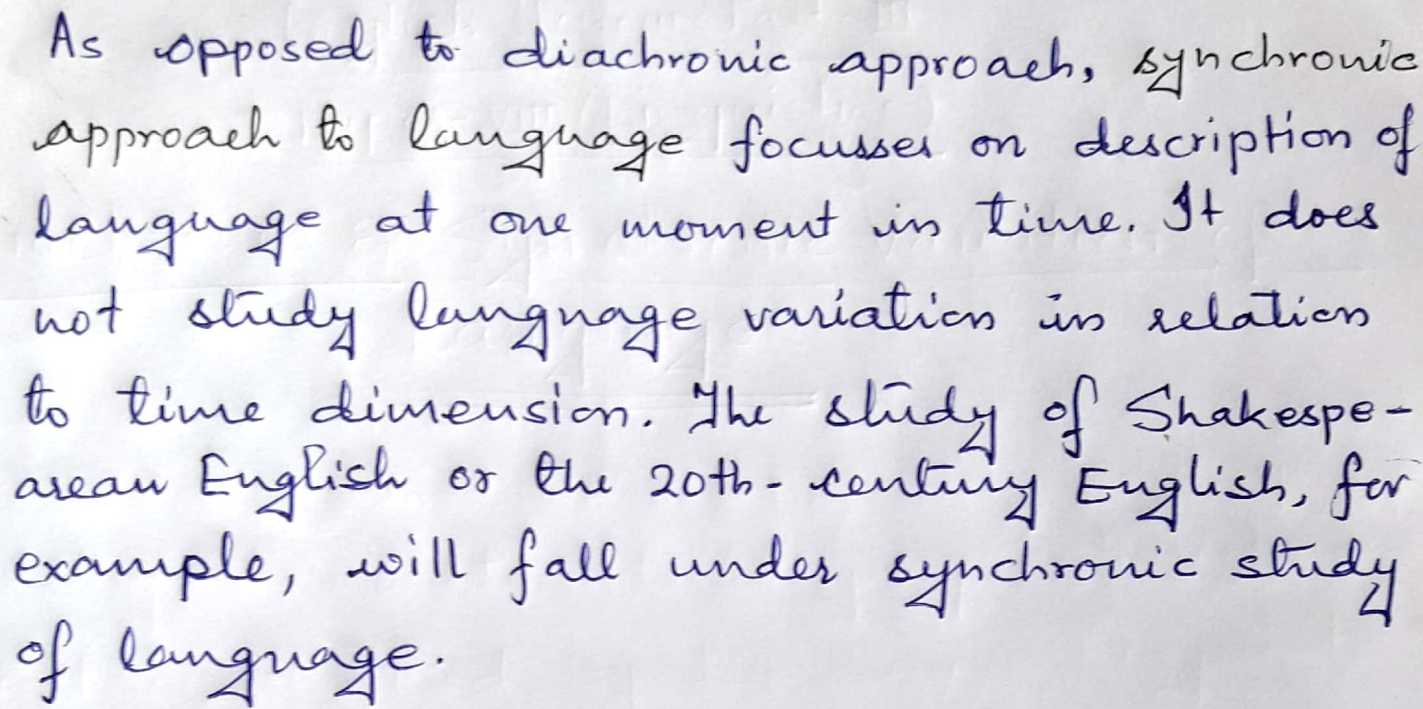 As opposed to diachronic approach, synchronic
approach to language focusses on description of
language at one moment in time. It does
not study language variation in relation
to time dimension. The study of Shakespe-
arean English or the 20th-century English, for
example, will fall under synchronic study
of language.